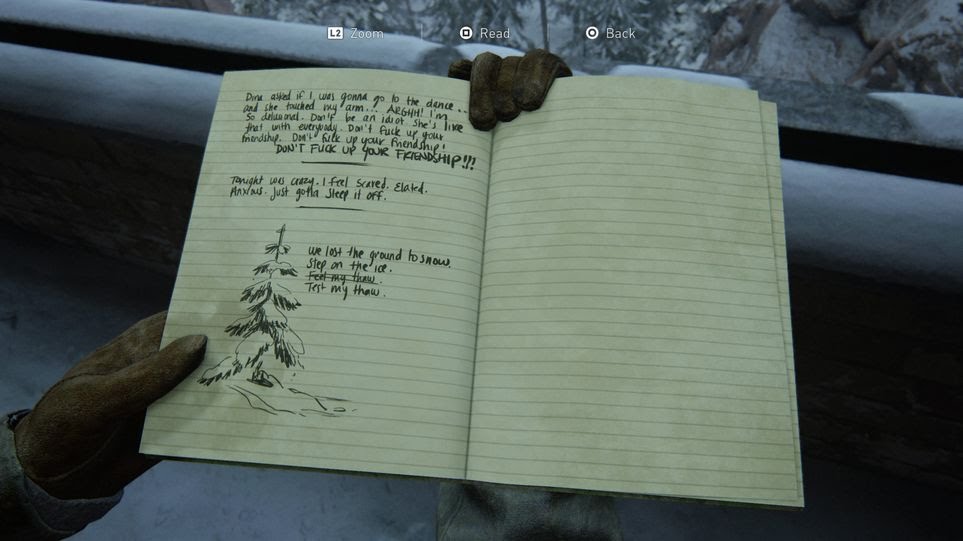 L2 Zoom Read Back
Dina asked if I was gonna go to the dance..
and she touched my arm... ARGHH! I'm
so delusional. Don't be an idiot she's like
that with everybody. Don't fuck up your
friendship. Don't fuck up your friendship!
DON'T FUCK UP YOUR FRIENDSHIP!!!
Tonight was crazy. I feel scared. Elated.
Anxious. Just gotta sleep it off.
We lost the ground to snow.
Step on the ice.
Feel my thaw.
Test my thaw.